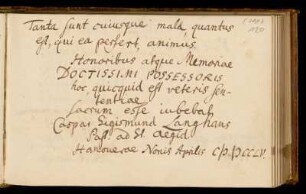 Tanta sunt cuiusque mala, quantus
est, qui ea perfert, animus.
Honoribus atque Memoriae
DOCTISSIMI POSSESSORIS
hoc, quicquid est veteris sen-
tentiae
Sacrum esse iubebat
Caspar Sigismund Langhans
Past. ad St. Aegid.
Hanoverae Nonis Aprilis CIƆIƆCCLV.